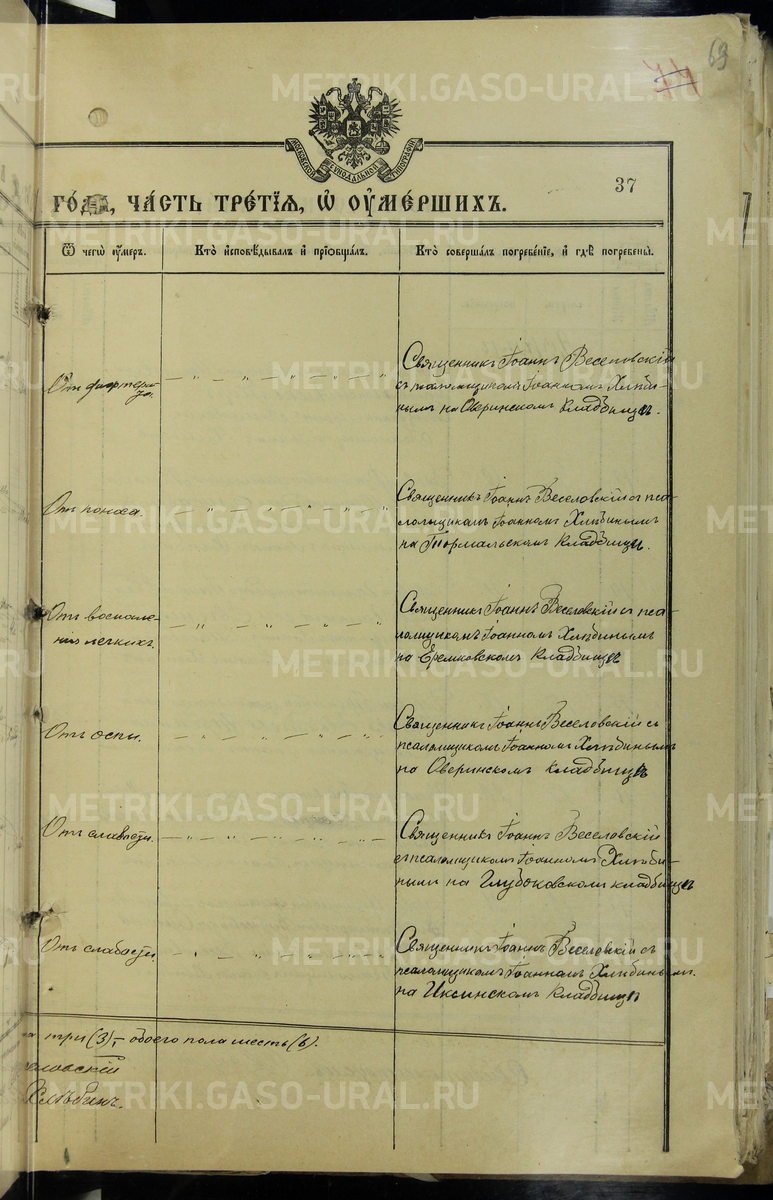 69
74
МОСКОВСКОЙ СѴНОДАЛЬНОЙ ТИПОГРАФІИ
37
го́да, ча́сть тре́тїѧ, ѡ҆ ᲂу҆ме́ршихъ.
Ѿ чегѡ̀ ᲂу҆́меръ.
Кто̀ и҆сповѣ́дывалъ и҆ прїѡбща́лъ.
Кто̀ соверша́лъ погребе́нїе, и҆ гдѣ̀ погребены̀.
Отъ
Священникъ Іоаннъ Веселовскій
съ псаломщикомъ Іоанномъ Хлѣби-
нымъ на Оверинскомъ кладбищѣ.
Отъ поноса.
Священникъ Іоаннъ Веселовскій съ пса-
ломщикомъ Іоанномъ Хлѣбинымъ
на кладбищѣ.
Отъ воспале-
нія легкихъ.
Священникъ Іоаннъ Веселовскій съ пса-
ломщикомъ Іоанномъ Хлѣбинымъ
на Еремковскомъ кладбищѣ
Отъ оспы.
Священникъ Іоаннъ Веселовскій съ
псаломщикомъ Іоанномъ Хлѣбинымъ
на Оверинскомъ кладбищѣ
Отъ слабости.
Священникъ Іоаннъ Веселовскій
съ псаломщикомъ Іоанномъ Хлѣби-
нымъ на Глубоковскомъ кладбищѣ
Отъ слабости.
Священникъ Іоаннъ Веселовскій съ
псаломщикомъ Іоанномъ Хлѣбинымъ.
на Иксинскомъ кладбищѣ
три (3), обоего пола шесть (6).
еловскій
Хлѣбинъ.
METRIKI.GASO-URAL.RU